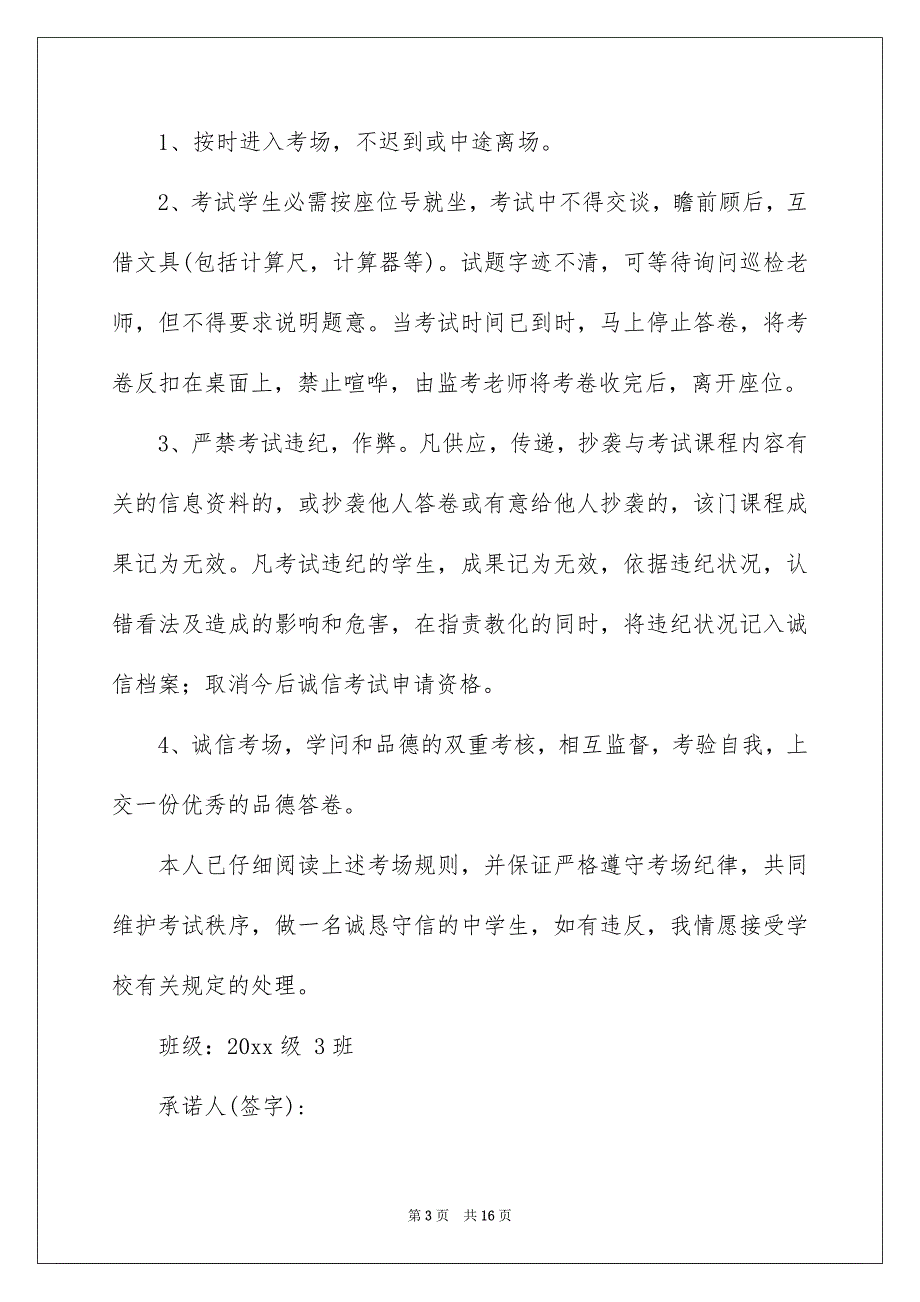 1、按时进入考场，不迟到或中途离场。
2、考试学生必需按座位号就坐，考试中不得交谈，瞻前顾后，互
借文具(包括计算尺，计算器等)。试题字迹不清，可等待询问巡检老
师，但不得要求说明题意。当考试时间已到时，马上停止答卷，将考
卷反扣在桌面上，禁止喧哗，由监考老师将考卷收完后，离开座位。
3、严禁考试违纪，作弊。凡供应，传递，抄袭与考试课程内容有
关的信息资料的，或抄袭他人答卷或有意给他人抄袭的，该门课程成
果记为无效。凡考试违纪的学生，成果记为无效，依据违纪状况，认
错看法及造成的影响和危害，在指责教化的同时，将违纪状况记入诚
信档案；取消今后诚信考试申请资格。
4、诚信考场，学问和品德的双重考核，相互监督，考验自我，上
交一份优秀的品德答卷。
本人已仔细阅读上述考场规则，并保证严格遵守考场纪律，共同
维护考试秩序，做一名诚恳守信的中学生，如有违反，我情愿接受学
校有关规定的处理。
班级：20xx级 3班
承诺人(签字)：
第 3 页 共 16 页